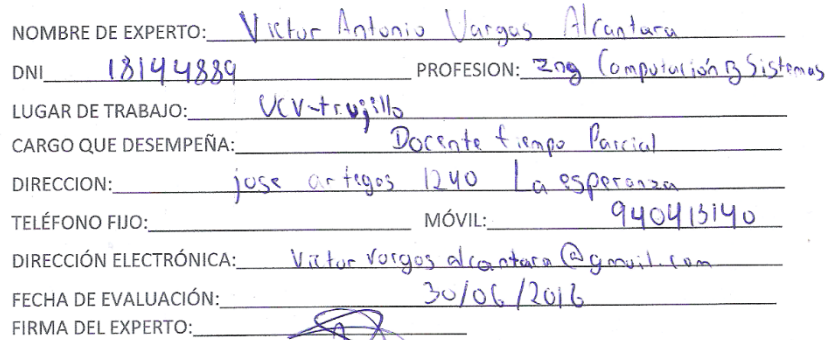 NOMBRE DE EXPERTO: Victor Antonio Vargas Alcantara
DNI 18144889 PROFESION: Ing Computación y Sistemas
LUGAR DE TRABAJO: UCV-trujillo
CARGO QUE DESEMPEÑA: Docente tiempo Parcial
DIRECCION: jose artegos 1240 La esperanza
TELÉFONO FIJO: MÓVIL: 940413140
DIRECCIÓN ELECTRÓNICA: Victor vargas alcantara@gmail.com
FECHA DE EVALUACIÓN: 30/06/2016
FIRMA DEL EXPERTO: